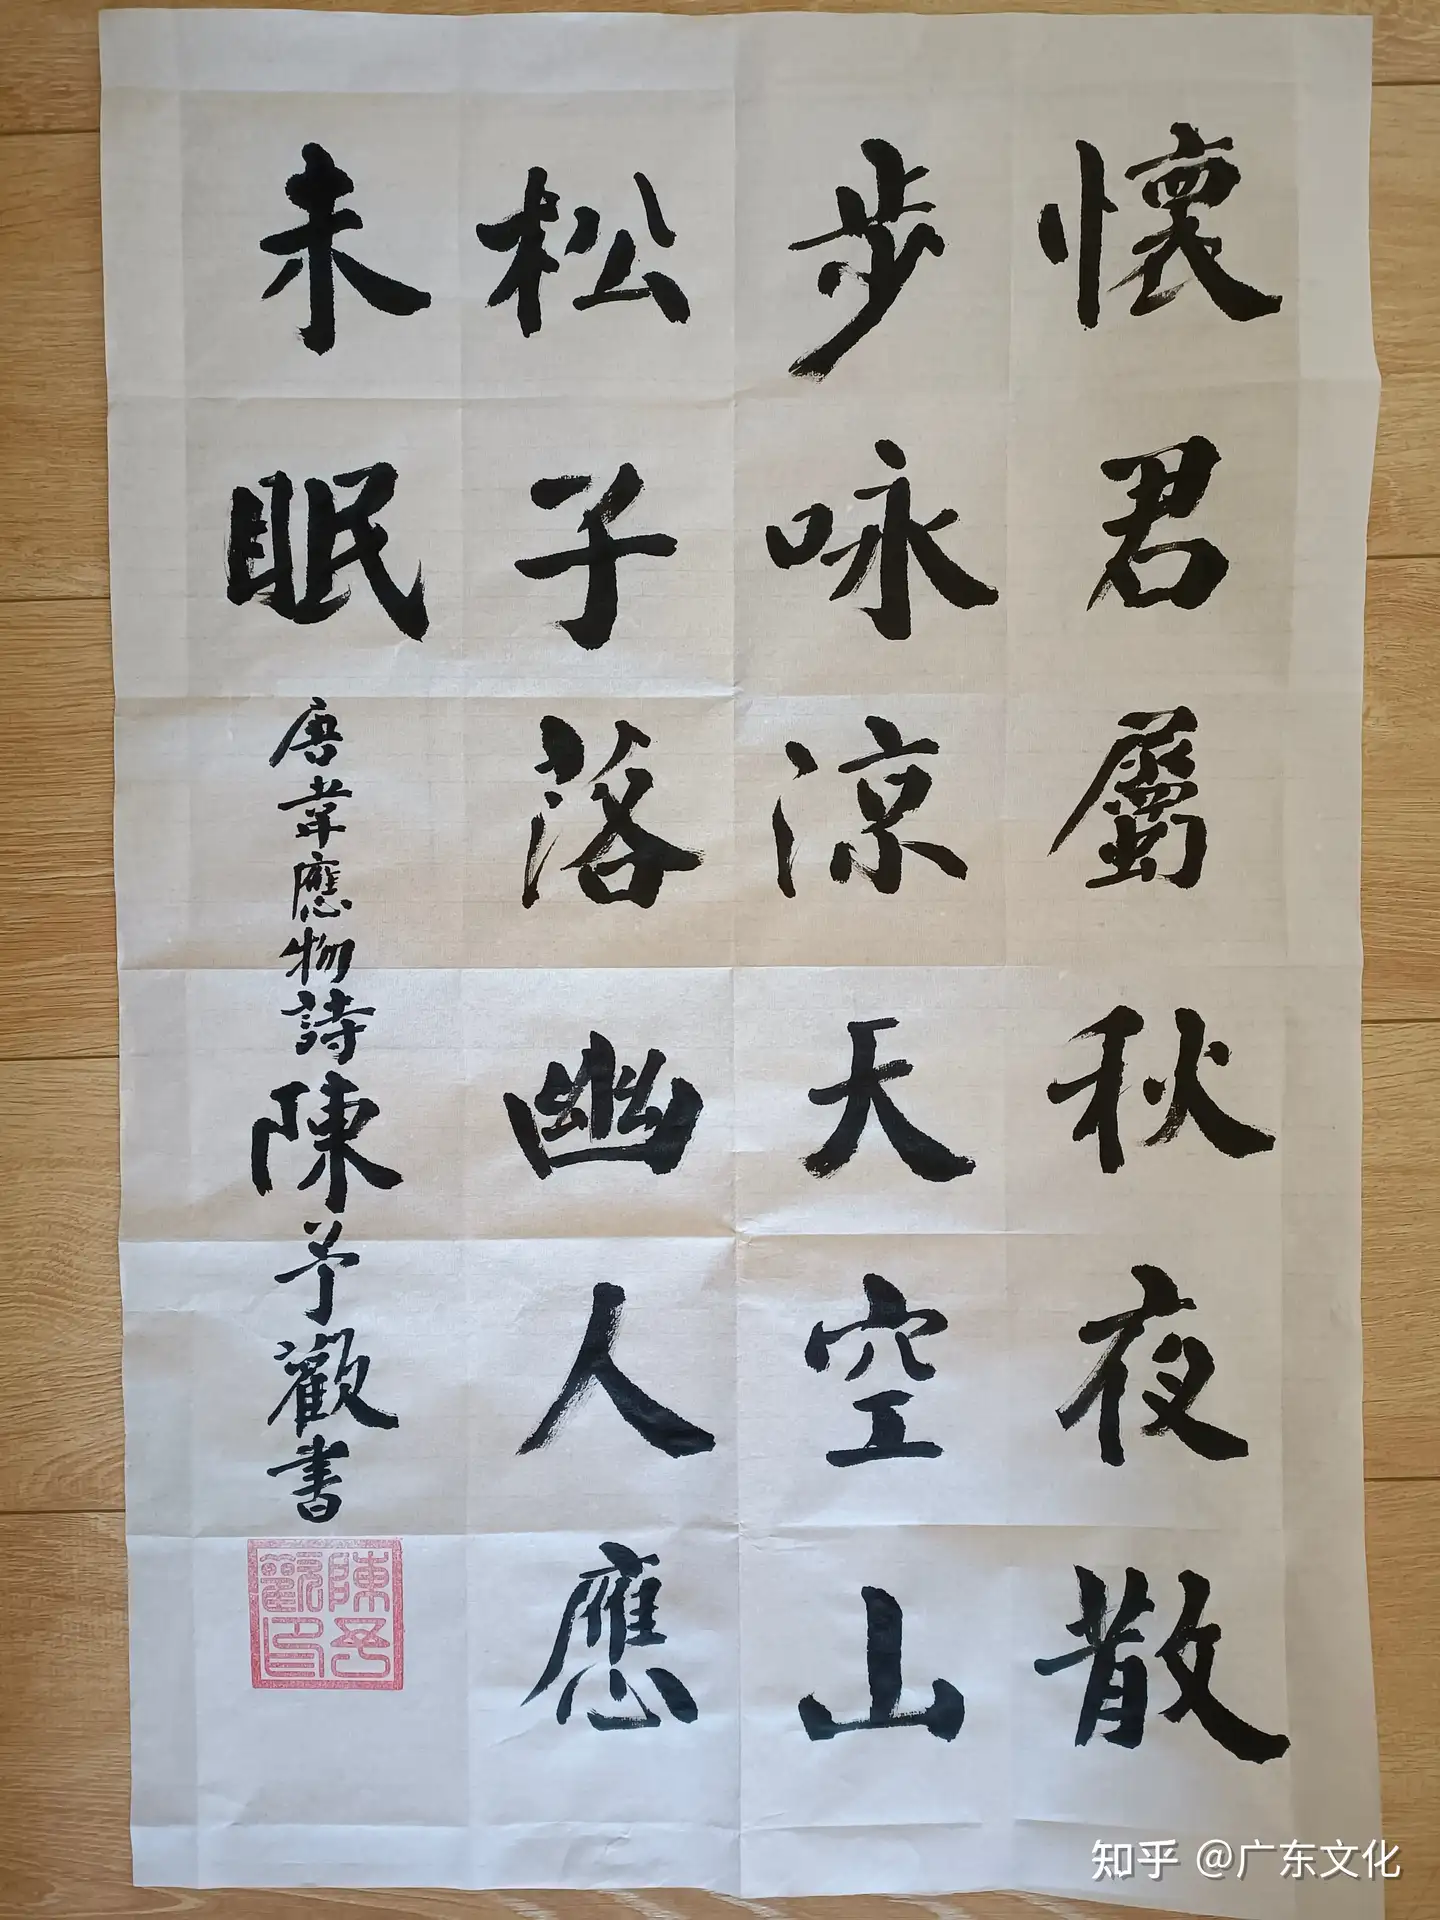 懷君屬秋夜散
步咏涼天空山
松子落幽人應
未眠
唐韋應物詩陳予歡書
知乎 @广东文化